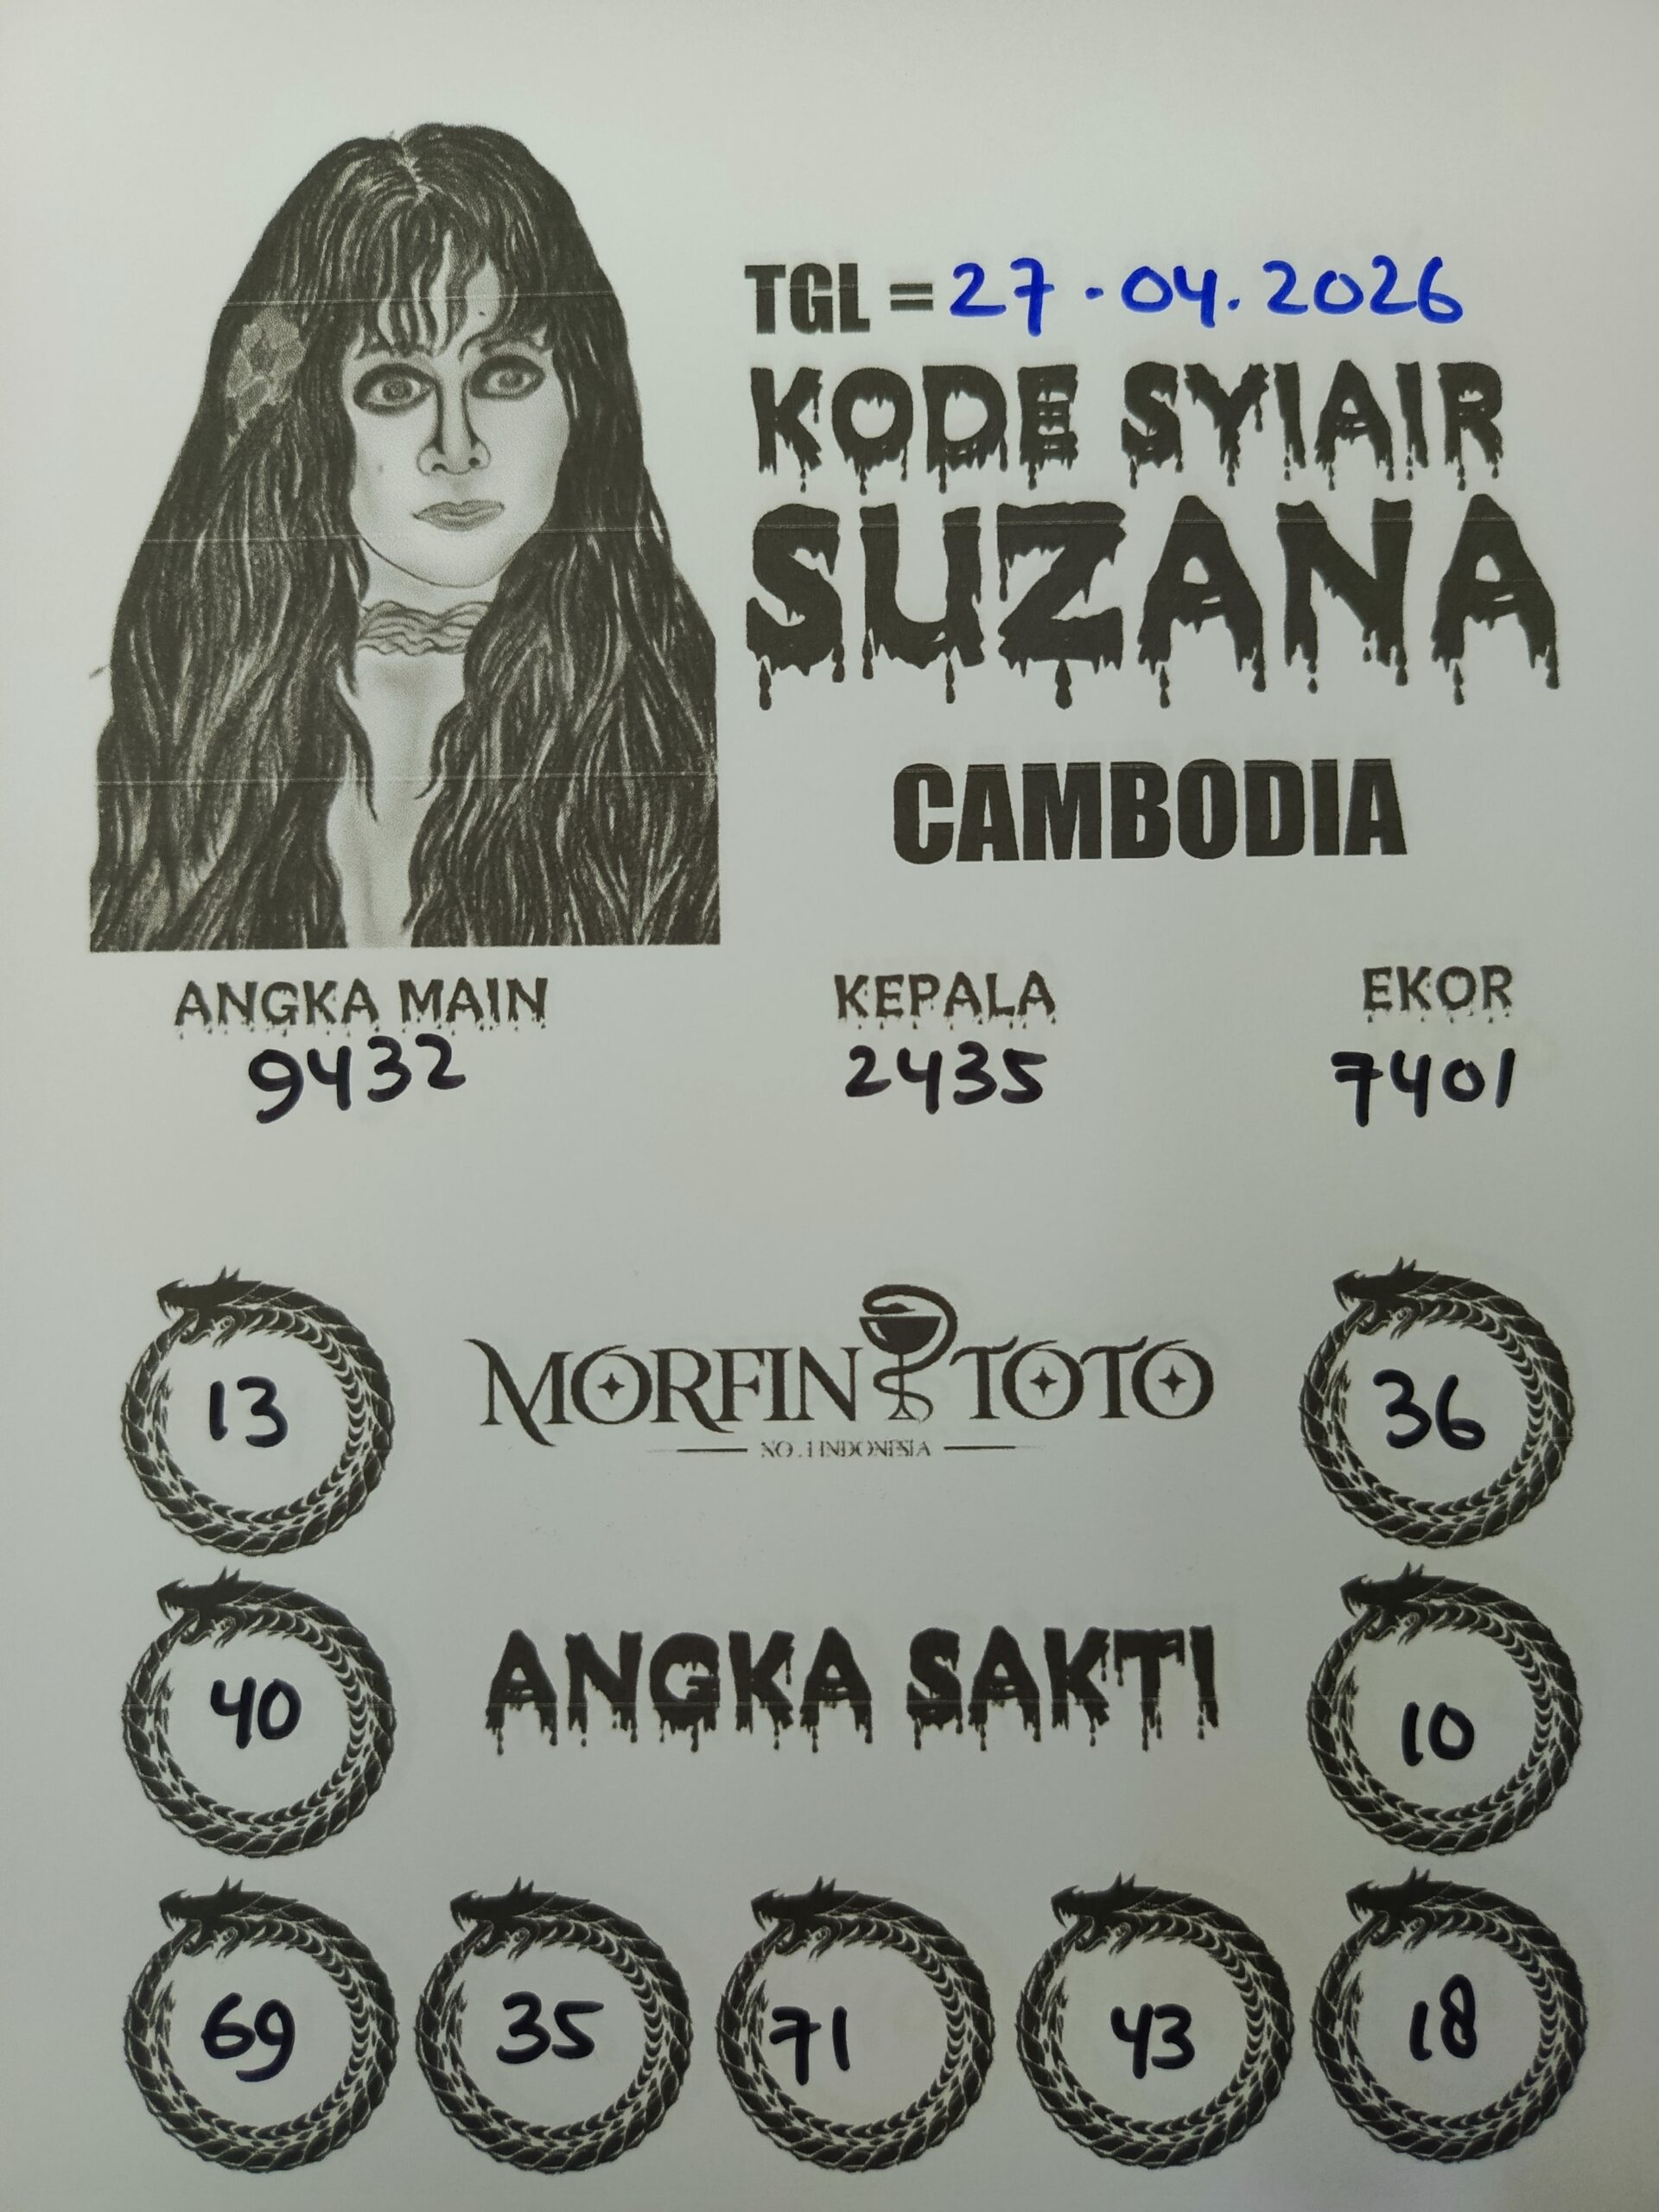 TGL = 27.04.2026
KODE SYIAIR
SUZANA
CAMBODIA
ANGKA MAIN KEPALA EKOR
9432 2435 7401
13 MORFIN TOTO 36
NO.1 INDONESIA
40 ANGKA SAKTI 10
69 35 71 43 18